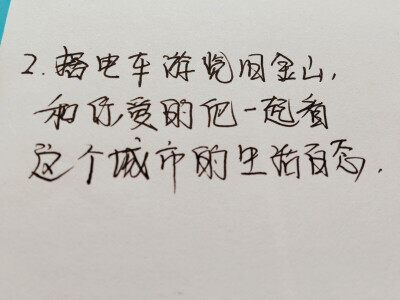 2.搭电车游览旧金山,
和你爱的他一起看
这个城市的生活百态.